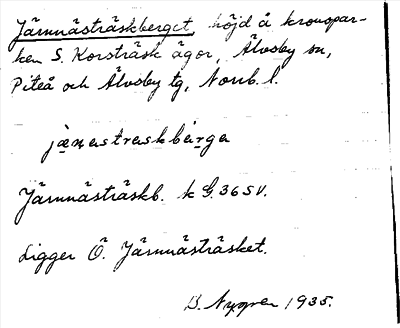 Järnnästräskberget, höjd å kronopar-
ken S. Korsträsk ägor, Älvsby sn,
Piteå och Älvsby tg, Norrb. l.
jänastraskbärga
Järnnästräskb. k G. 36 SV.
Ligger Ö. Järnnästräsket.
B. Nygren 1935.